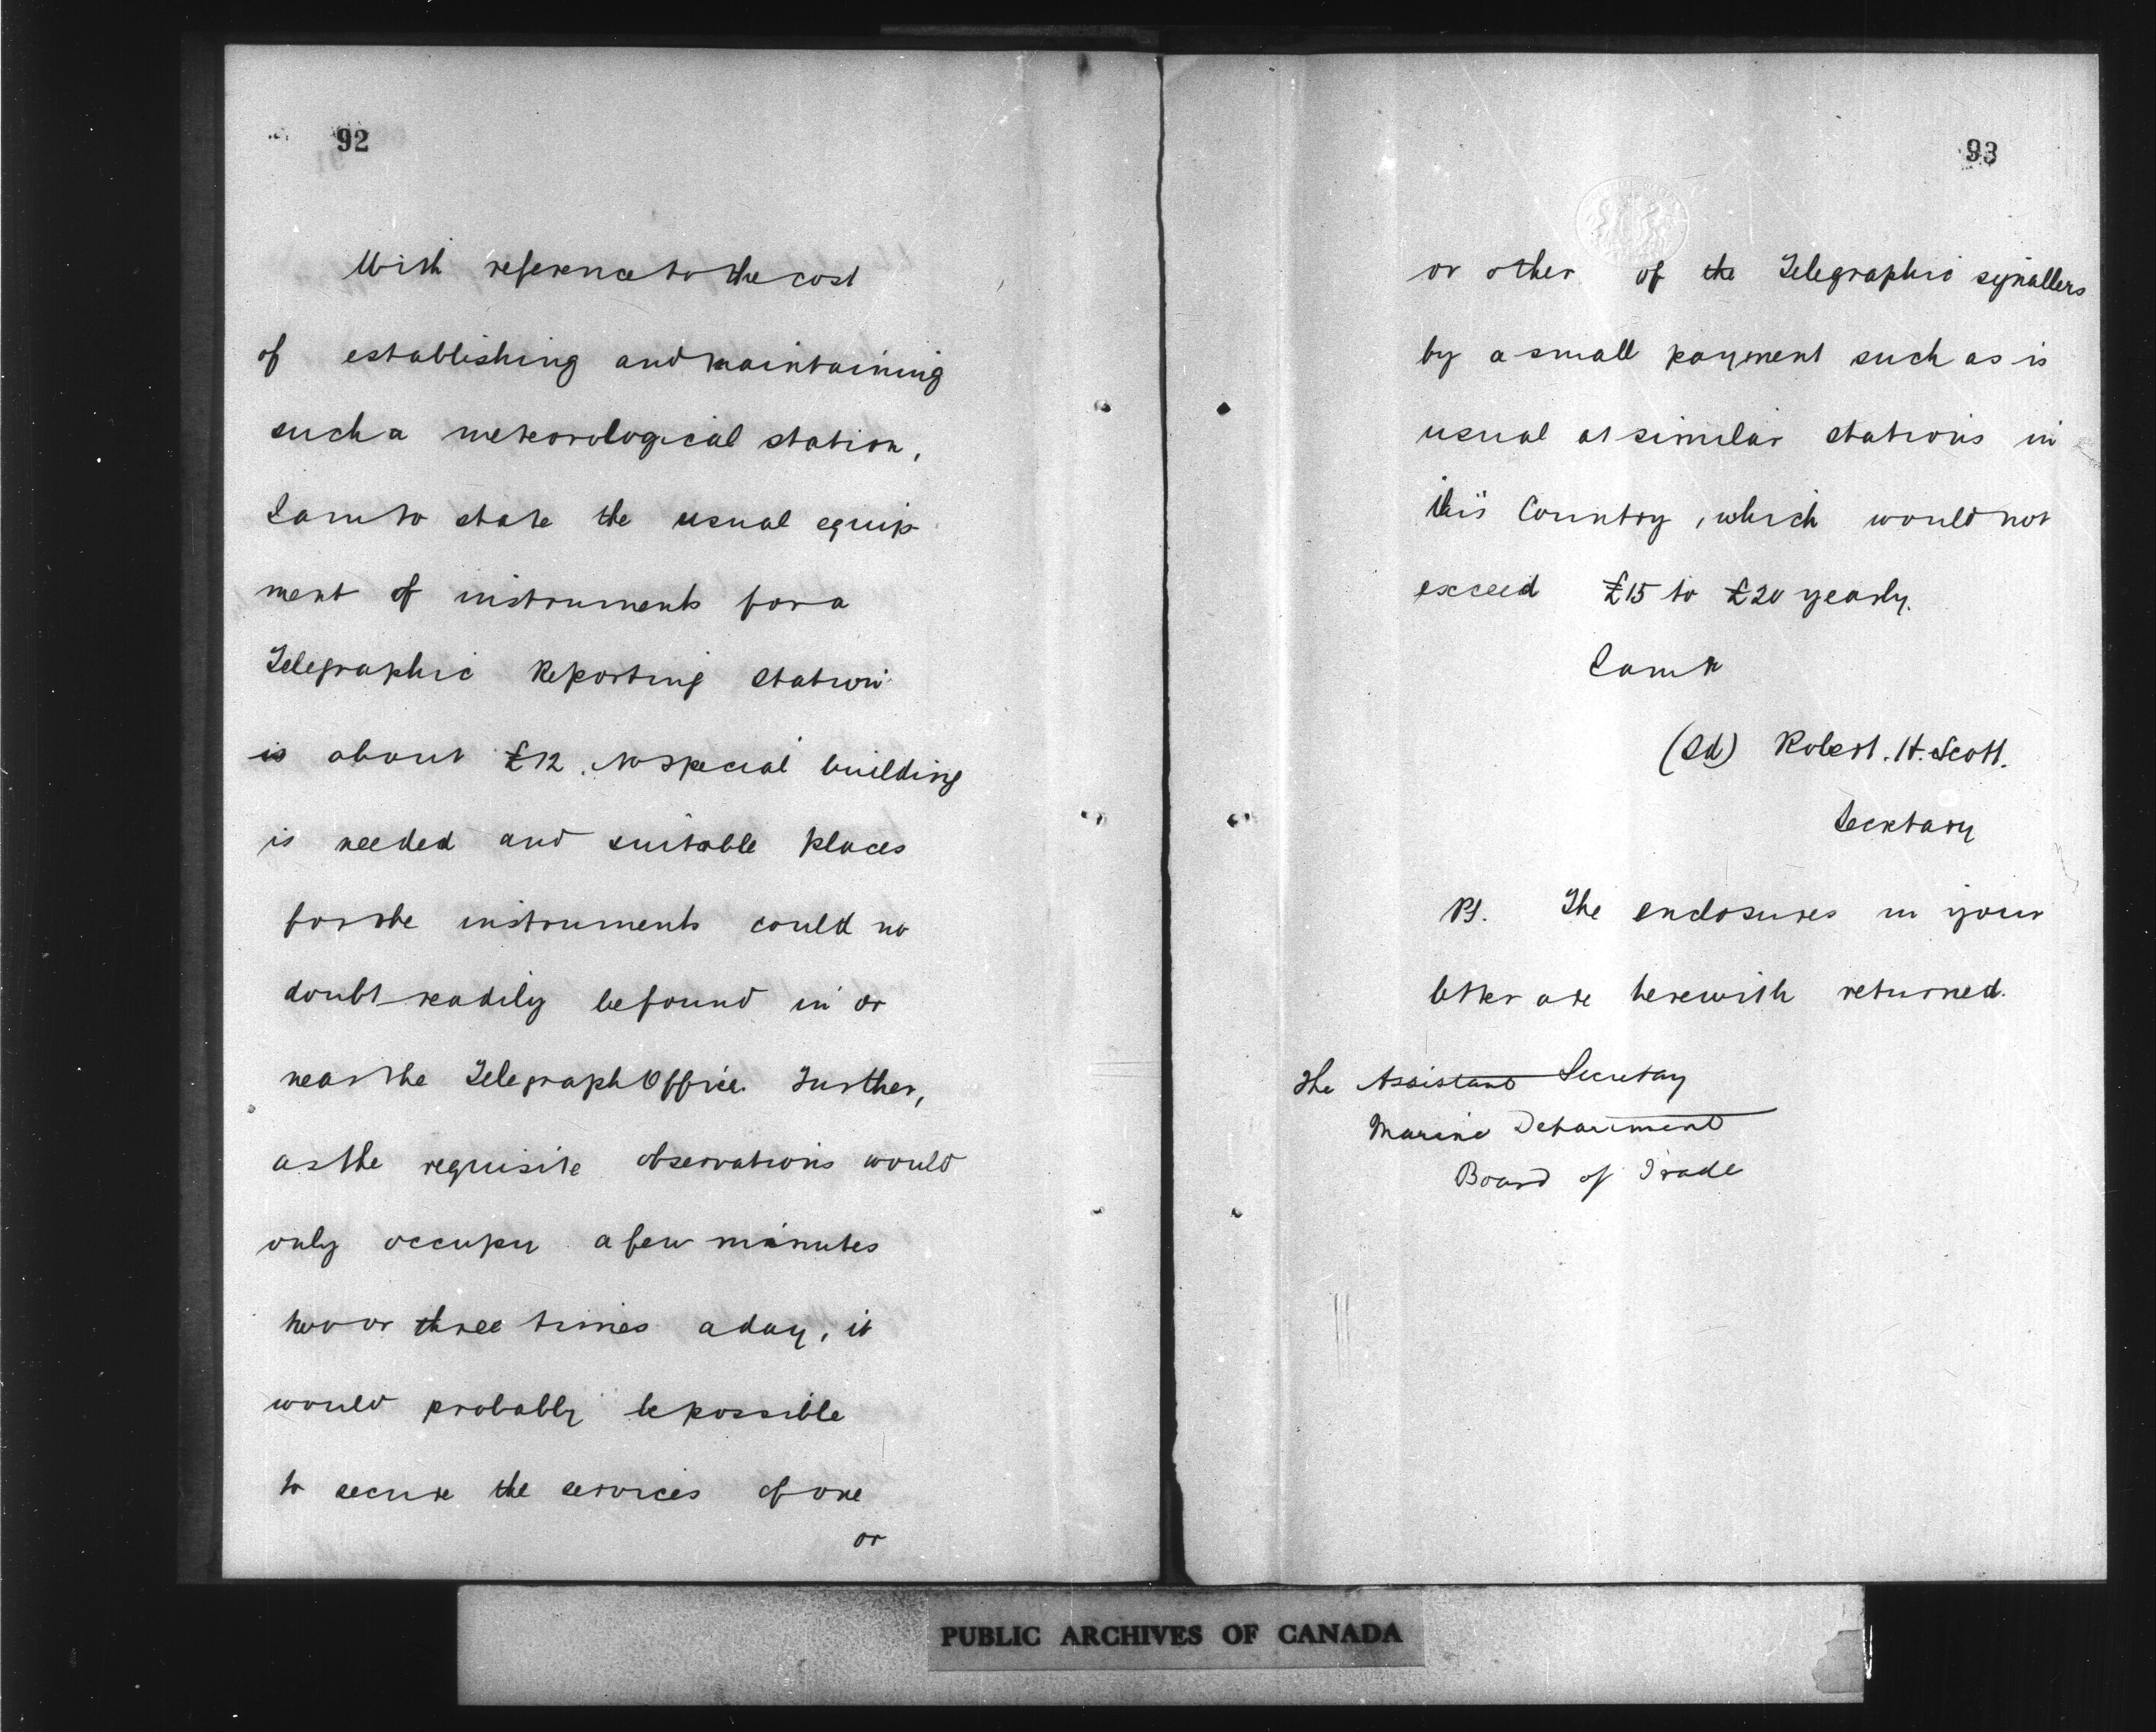 92
With reference to the cost
of establishing and maintaining
such a meteorological station,
I am to state the usual equip
ment of instruments for a
Telegraphic Reporting Station
is about £12. No special building
is needed and suitable places
for the instruments could no
doubt readily be found in or
near the Telegraph Office. Further,
as the requisite observations would
only occupy a few minutes
two or three times a day, it
would probably be possible
to secure the services of one
or
93
or other of the Telegraphic signallers
by a small payment such as is
usual at similar stations in
this Country, which would not
exceed £15 to £20 yearly.
I am &
(Sd) Robert. H. Scott.
Secretary
PS. The enclosures in your
letter are herewith returned.
The Assistant Secretary
Marine Department
Board of Trade
PUBLIC ARCHIVES OF CANADA